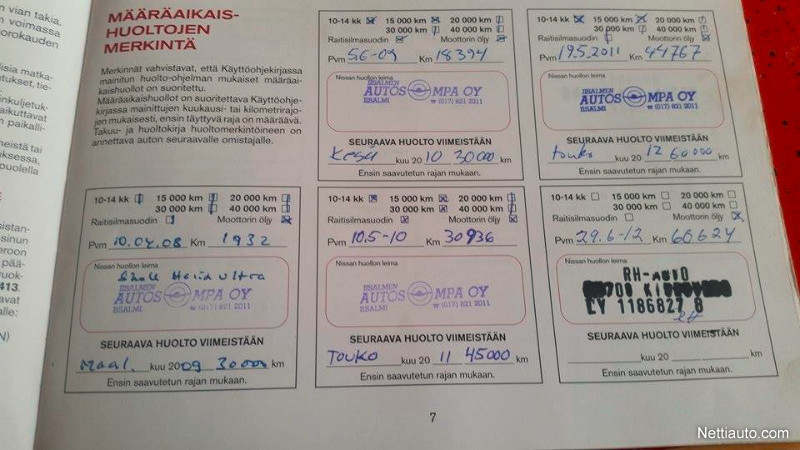 n vian takia.
n voimassa
orokauden
lisia matka-
tukset, tie-
inkuljetuk-
aikuttavat
n paikalli-
neistä tai
uksessa,
puolella
E
sistan-
sinun
eroon
pää-
uok-
413.
tavat
alle:
N)
MÄÄRÄAIKAIS-
HUOLTOJEN
MERKINTÄ
Merkinnät vahvistavat, että Käyttöohjekirjassa
mainitun huolto-ohjelman mukaiset määräai-
kaishuollot on suoritettu.
Määräaikaishuollot on suoritettava Käyttöohje-
kirjassa mainittujen kuukausi- tai kilometrirajo-
jen mukaisesti, ensin täyttyvä raja on määräävä.
Takuu- ja huoltokirja huoltomerkintöineen on
annettava auton seuraavalle omistajalle.
10-14 kk 15 000 km 20 000 km
30 000 km 40 000 km
Raitisilmasuodin Moottorin öljy
Pvm 5.6-09 Km 18394
Nissan huollon leima
IISALMEN
AUTOS MPA OY
IISALMI (017) 821 2011
SEURAAVA HUOLTO VIIMEISTÄÄN
Kesä kuu 20 10 30000 km
Ensin saavutetun rajan mukaan.
10-14 kk 15 000 km 20 000 km
30 000 km 40 000 km
Raitisilmasuodin Moottorin öljy
Pvm 19.5.2011 Km 44767
Nissan huollon leima
IISALMEN
AUTOS MPA OY
IISALMI (017) 821 2011
SEURAAVA HUOLTO VIIMEISTÄÄN
touko kuu 20 12 60000 km
Ensin saavutetun rajan mukaan.
10-14 kk 15 000 km 20 000 km
30 000 km 40 000 km
Raitisilmasuodin Moottorin öljy
Pvm 10.04.08 Km 1932
Nissan huollon leima
Shell Helix Ultra
IISALMEN
AUTOS MPA OY
IISALMI (017) 821 2011
SEURAAVA HUOLTO VIIMEISTÄÄN
Maal. kuu 2009 30000 km
Ensin saavutetun rajan mukaan.
10-14 kk 15 000 km 20 000 km
30 000 km 40 000 km
Raitisilmasuodin Moottorin öljy
Pvm 10.5-10 Km 30936
Nissan huollon leima
IISALMEN
AUTOS MPA OY
IISALMI (017) 821 2011
SEURAAVA HUOLTO VIIMEISTÄÄN
TOUKO kuu 20 11 45000 km
Ensin saavutetun rajan mukaan.
10-14 kk 15 000 km 20 000 km
30 000 km 40 000 km
Raitisilmasuodin Moottorin öljy
Pvm 29.6-12 Km 60624
Nissan huollon leima
RH-AUTO
LY 1186827 8
SEURAAVA HUOLTO VIIMEISTÄÄN
kuu 20 km
Ensin saavutetun rajan mukaan.
7
Nettiauto.com